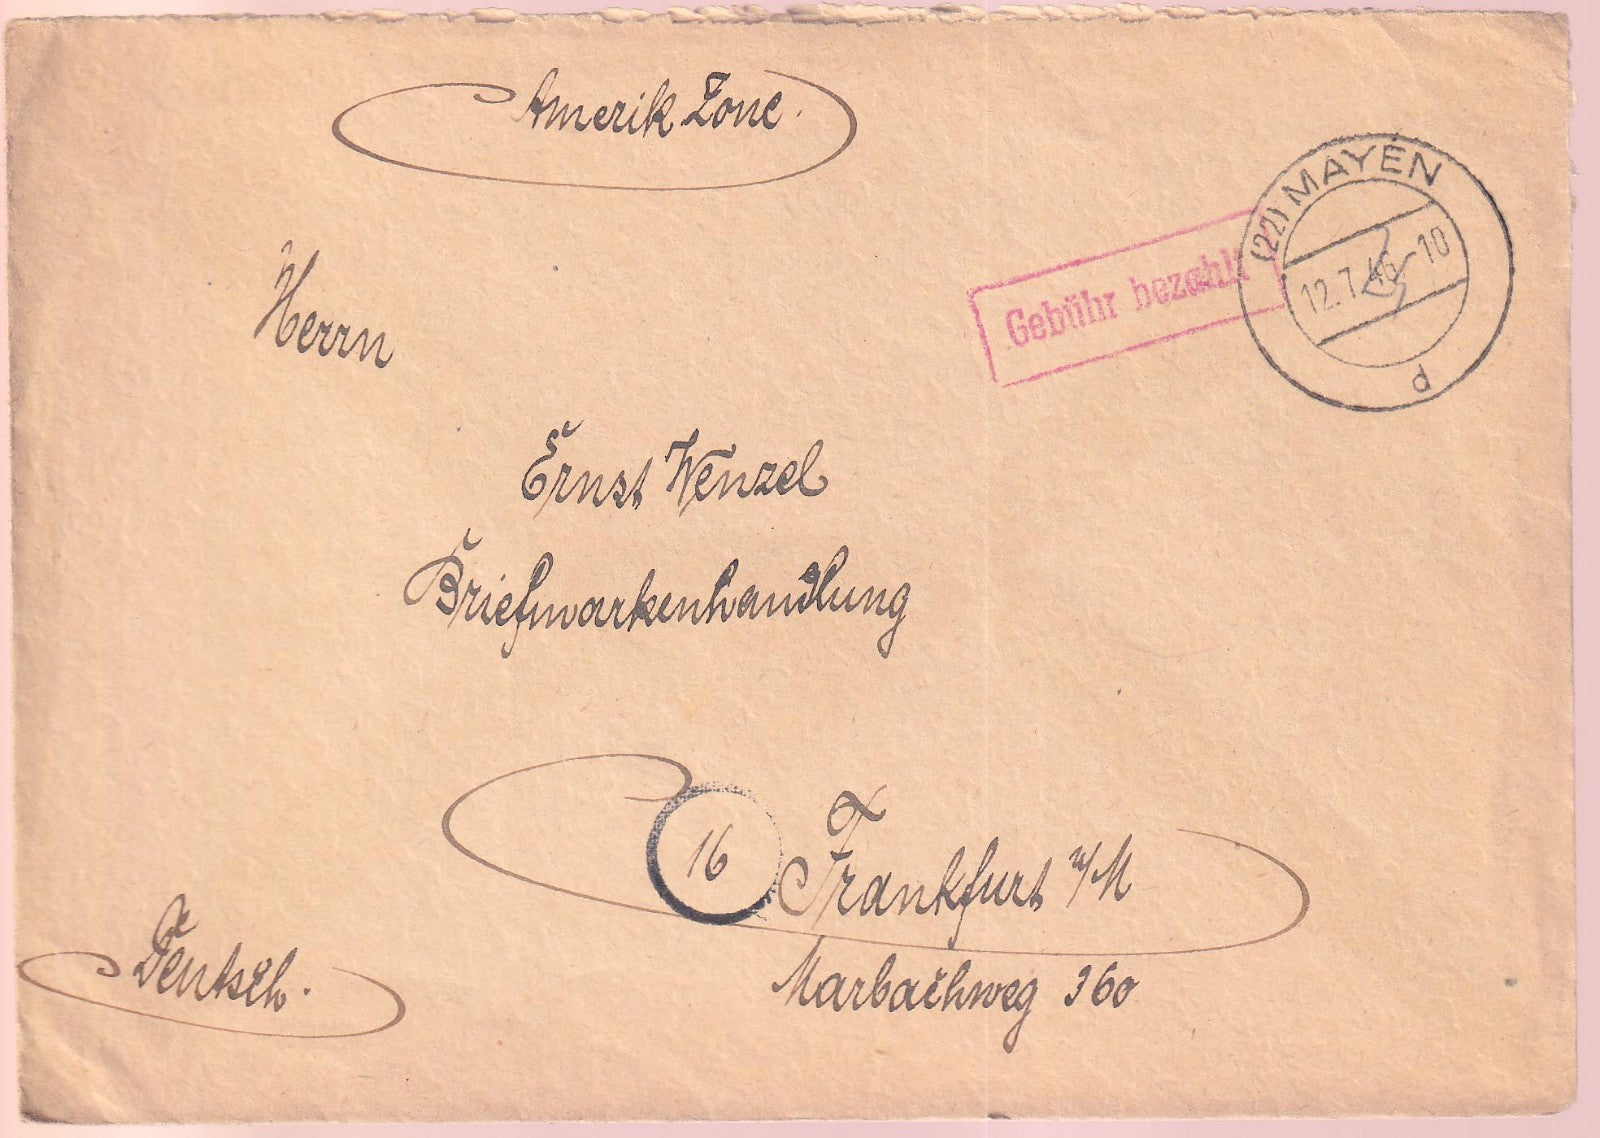 Amerik Zone.
(22) MAYEN
12.7.46-10
d
Gebühr bezahlt
Herrn
Ernst Wenzel
Briefmarkenhandlung
16
Frankfurt a/M
Marbachweg 360
Deutsch.